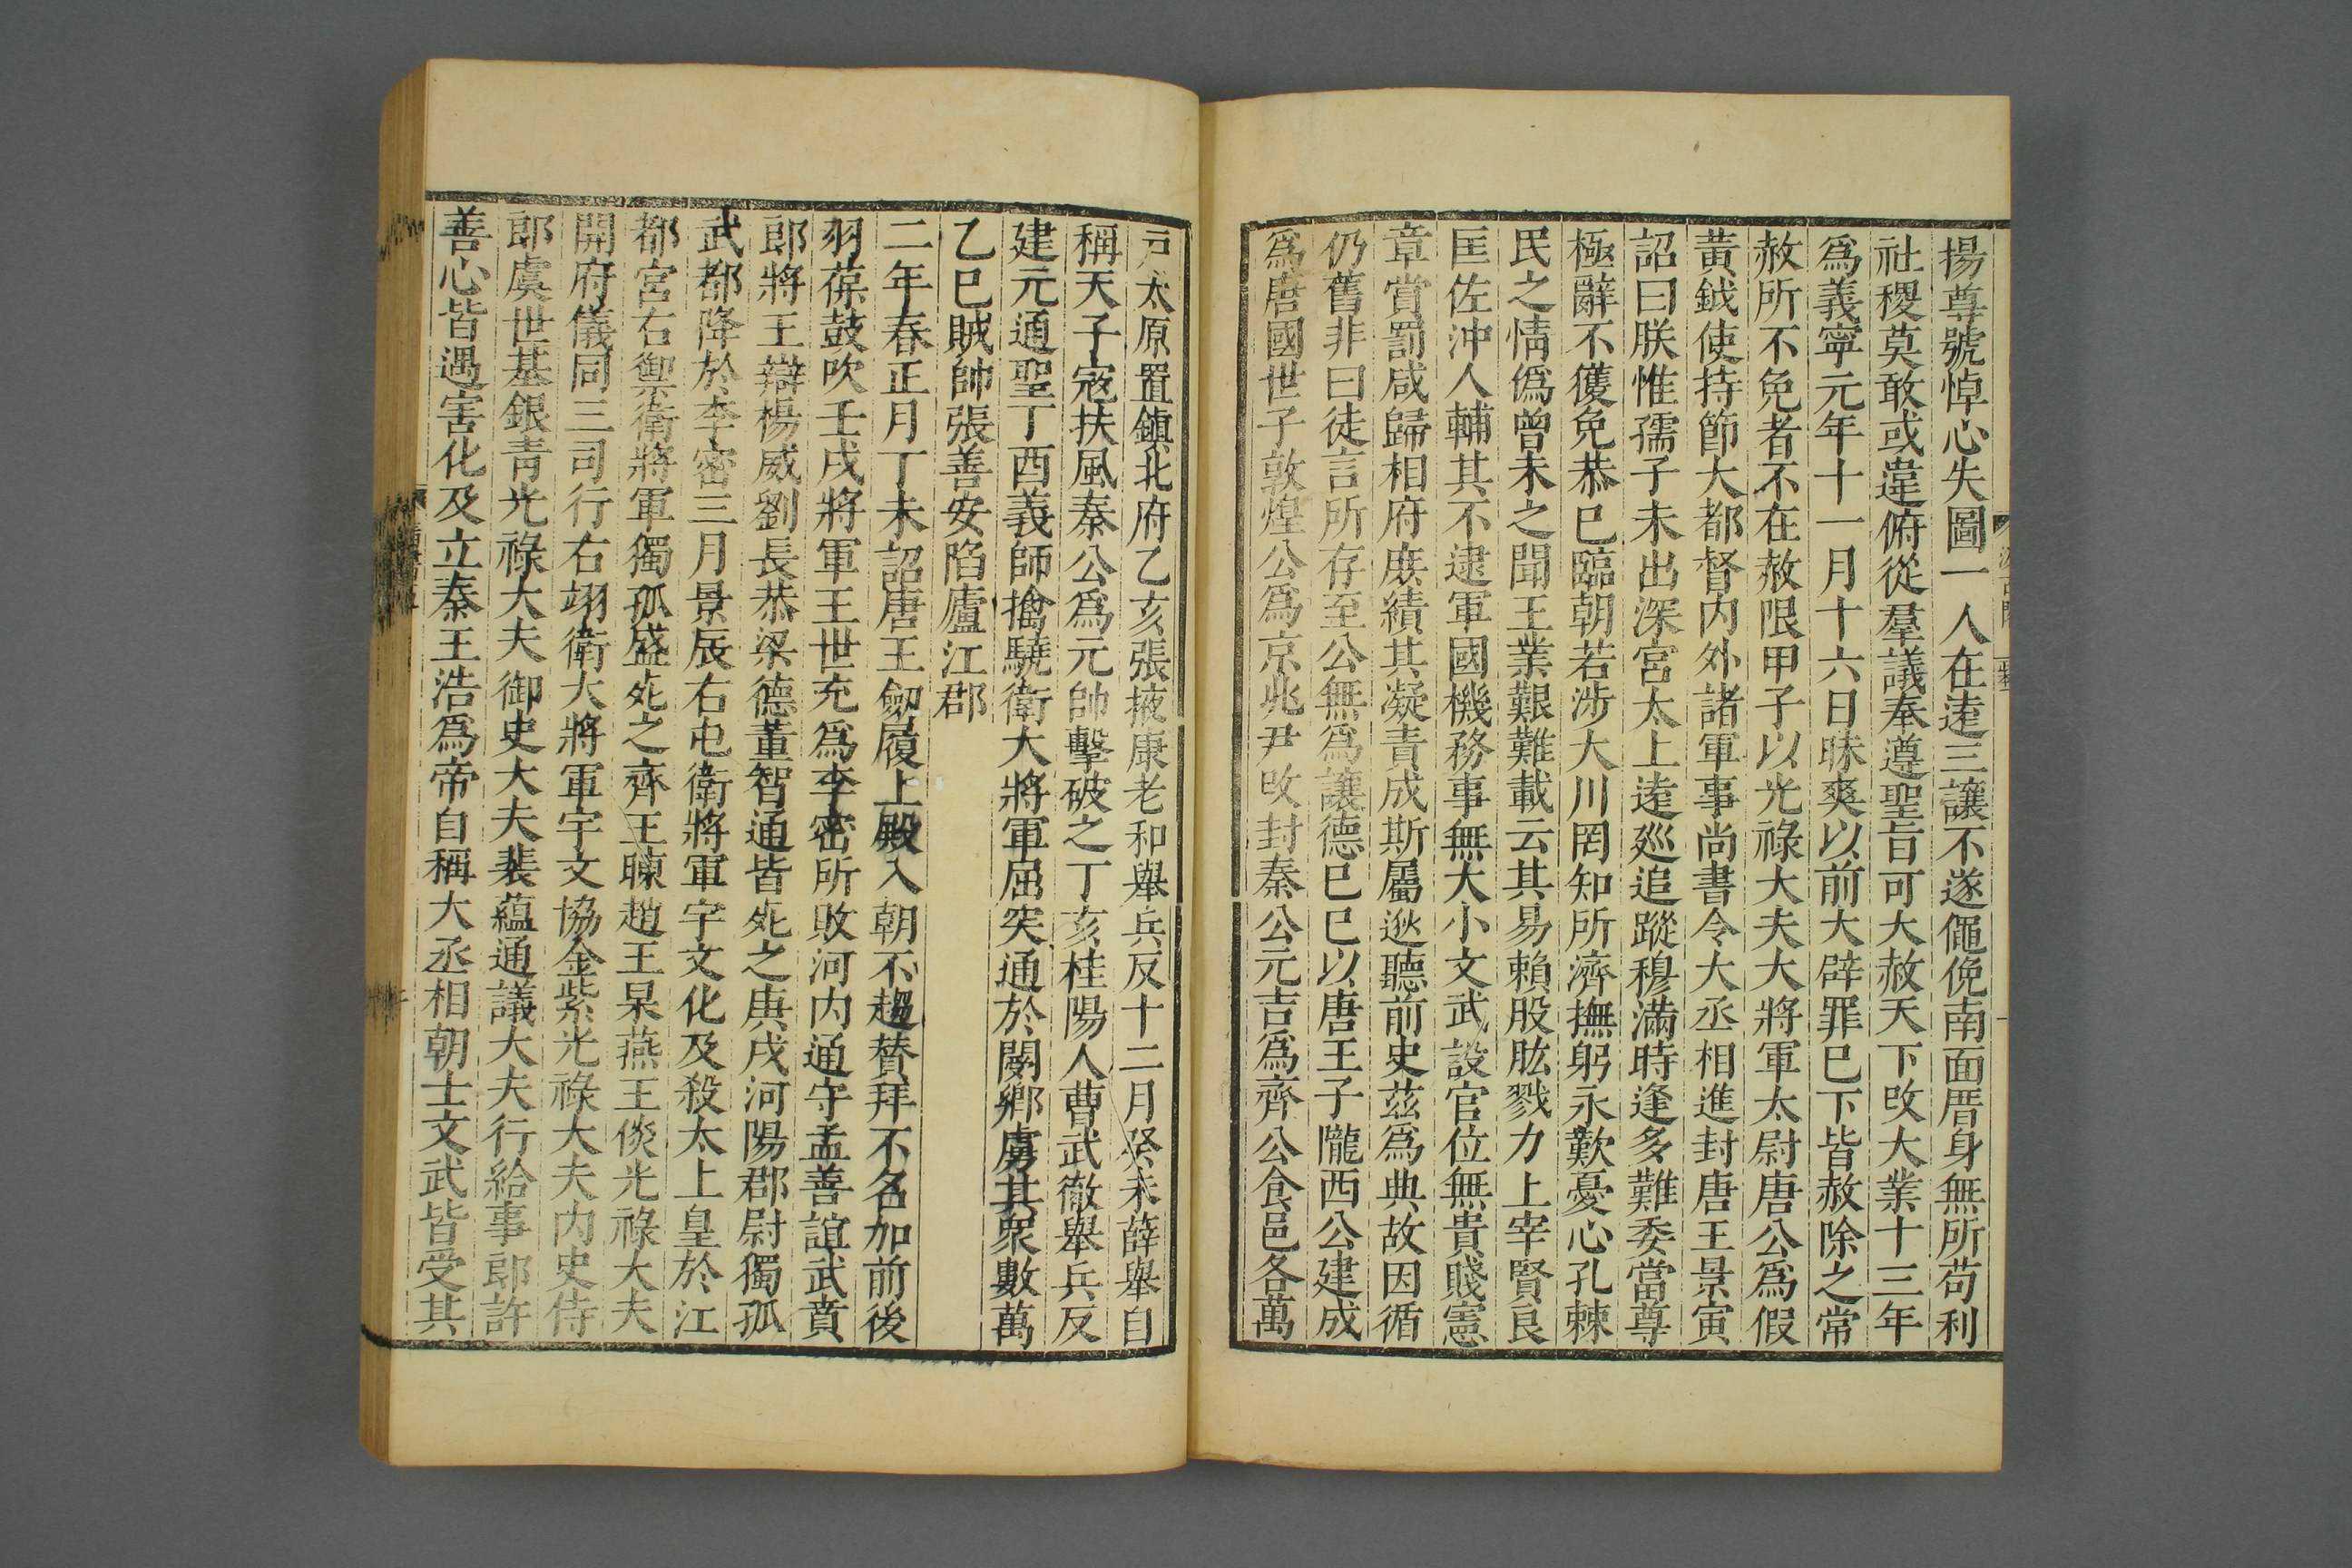 揚尊號悼心失圖一人在遠三讓不遂僶俛南面厝身無所苟利
社稷莫敢或違俯從羣議奉遵聖旨可大赦天下改大業十三年
爲義寧元年十一月十六日昧爽以前大辟罪已下皆赦除之常
赦所不免者不在赦限甲子以光祿大夫大將軍太尉唐公爲假
黃鉞使持節大都督內外諸軍事尚書令大丞相進封唐王景寅
詔曰朕惟孺子未出深宮太上遠廵追蹤穆滿時逢多難委當尊
極辭不獲免恭已臨朝若涉大川罔知所濟撫躬永歎憂心孔棘
民之情僞曾未之聞王業艱難載云其易賴股肱戮力上宰賢良
匡佐沖人輔其不逮軍國機務事無大小文武設官位無貴賤憲
章賞罰咸歸相府庶績其凝責成斯屬逖聽前史茲爲典故因循
仍舊非曰徒言所存至公無爲讓德已巳以唐王子隴西公建成
爲唐國世子敦煌公爲京兆尹改封秦公元吉爲齊公食邑各萬
戸太原置鎮北府乙亥張掖康老和舉兵反十二月癸未薛舉自
稱天子寇扶風秦公爲元帥擊破之丁亥桂陽人曹武徹舉兵反
建元通聖丁酉義師擒驍衛大將軍屈突通於閿鄉虜其衆數萬
乙巳賊帥張善安陷廬江郡
二年春正月丁未詔唐王劒履上殿入朝不趨贊拜不名加前後
羽葆鼓吹壬戌將軍王世充爲李密所敗河內通守孟善誼武賁
郎將王辯楊威劉長恭梁德董智通皆死之庚戌河陽郡尉獨孤
武都降於李密三月景辰右屯衛將軍宇文化及殺太上皇於江
都宮右禦衛將軍獨孤盛死之齊王暕趙王杲燕王倓光祿大夫
開府儀同三司行右翊衛大將軍宇文協金紫光祿大夫內史侍
郎虞世基銀青光祿大夫御史大夫裴蘊通議大夫行給事郎許
善心皆遇害化及立秦王浩爲帝自稱大丞相朝士文武皆受其